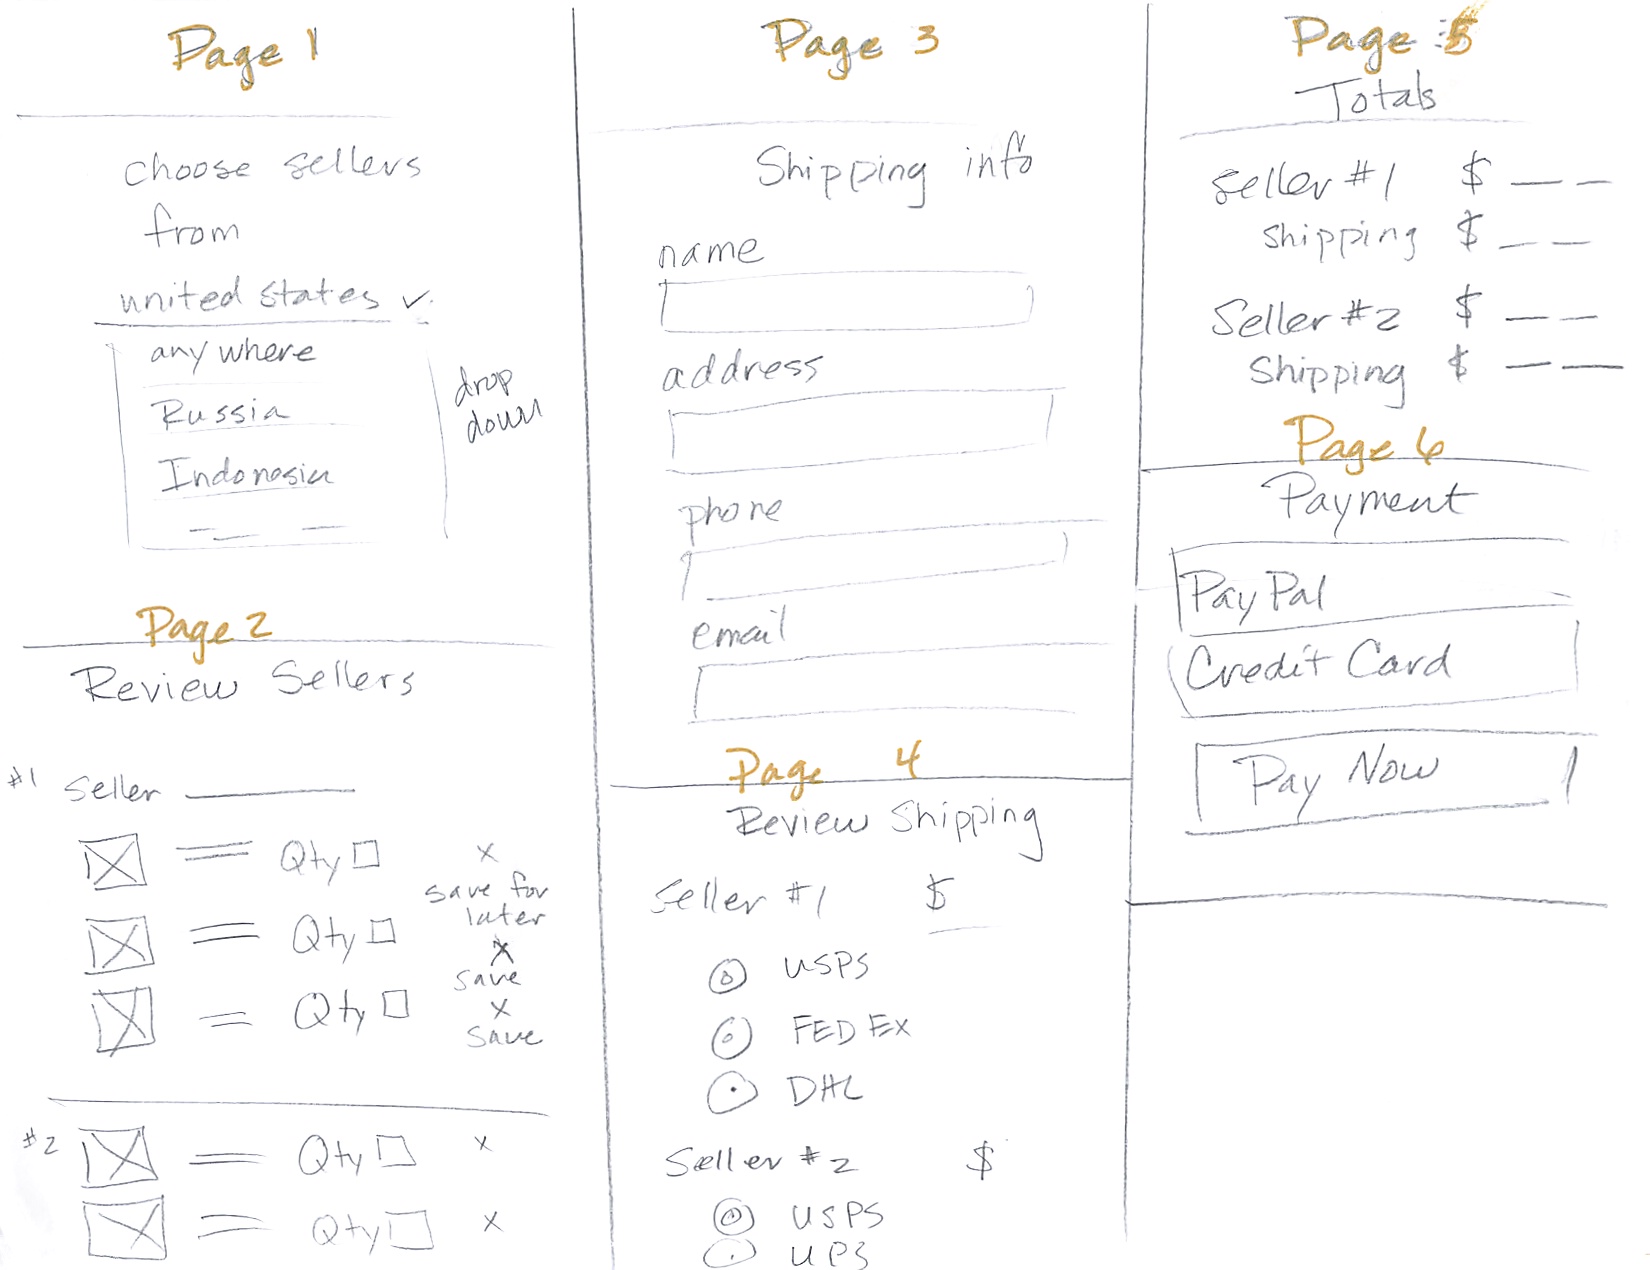 Page 1
choose sellers
from
united states
any where
Russia
Indonesia
drop
down
Page 2
Review Sellers
#1
Seller
Qty
x
save for
later
Qty
x
save
Qty
x
save
#2
Qty
x
Qty
x
Page 3
Shipping info
name
address
phone
email
Page 4
Review Shipping
Seller #1 $
USPS
FED EX
DHL
Seller #2 $
USPS
UPS
Page 5
Totals
Seller #1 $
Shipping $
Seller #2 $
Shipping $
Page 6
Payment
PayPal
Credit Card
Pay Now